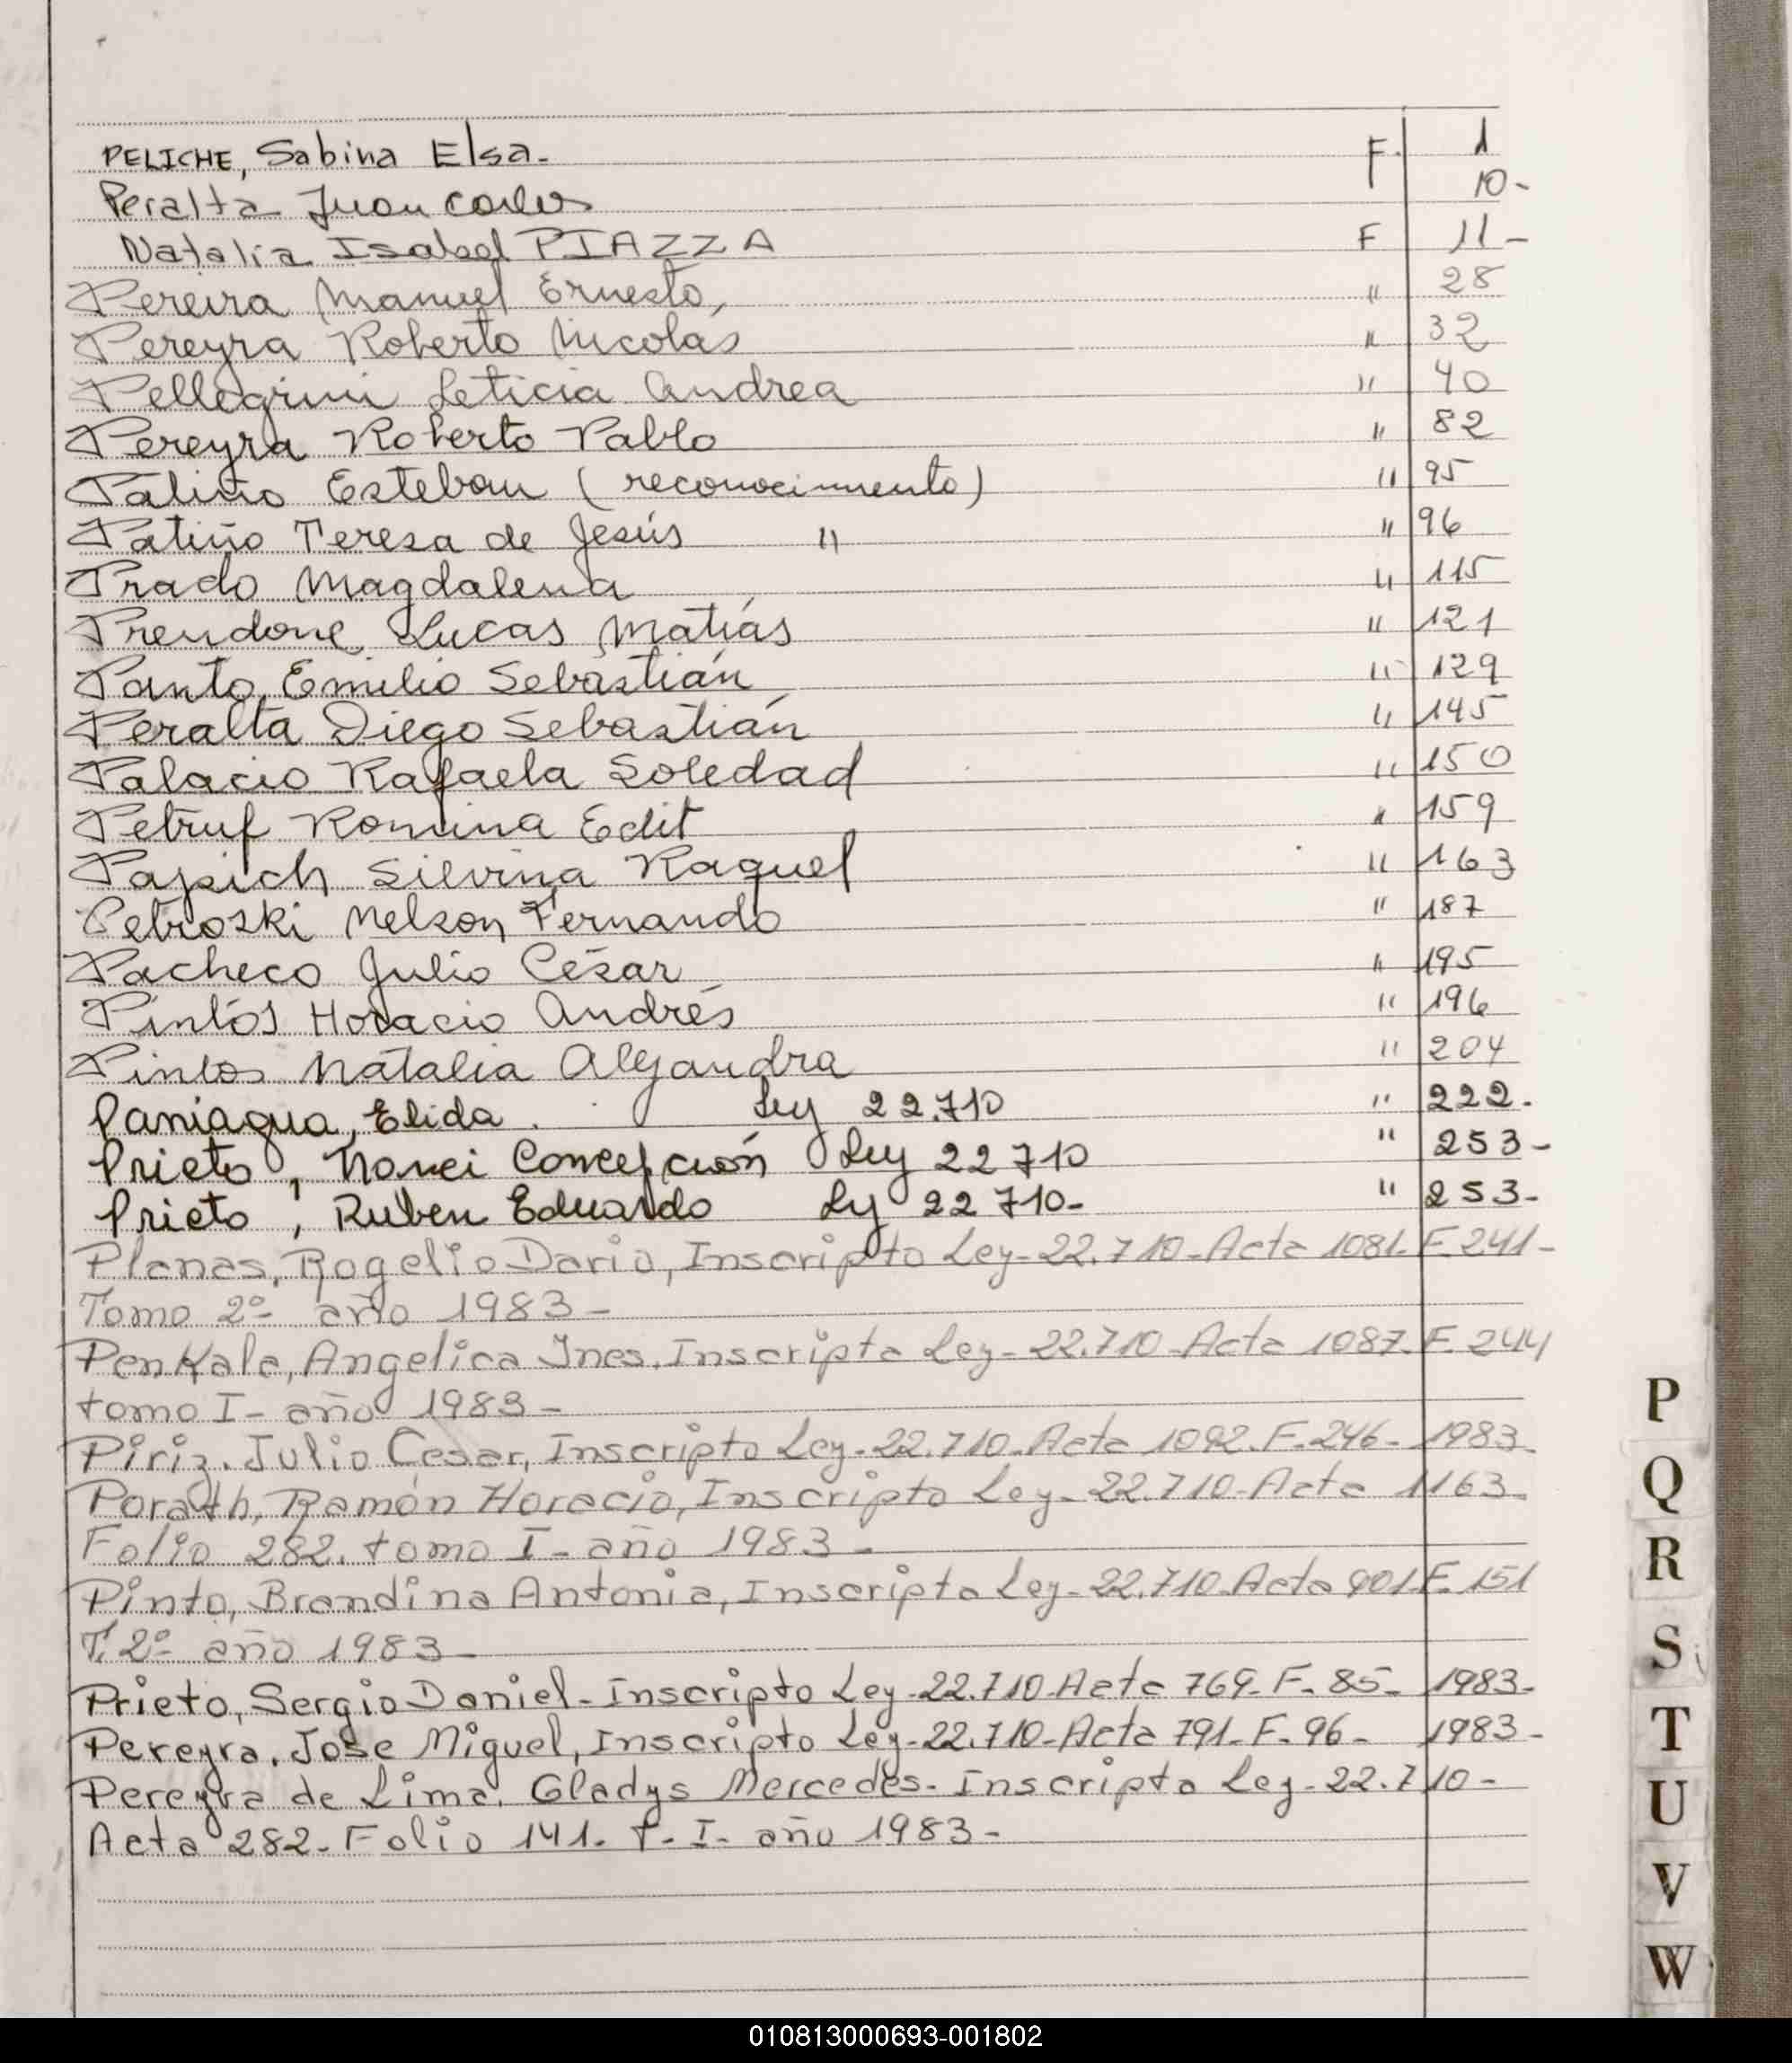 PELICHE, Sabina Elsa- F. 1
Peralta Juan Carlos 10-
Natalia Isabel PIAZZA F 11-
Pereira Manuel Ernesto, " 28
Pereyra Roberto Nicolas " 32
Pellegrini Leticia Andrea " 40
Pereyra Roberto Pablo " 82
Patiño Esteban (reconocimiento) " 95
Patiño Teresa de Jesús " " 96
Prado Magdalena " 115
Prendone Lucas Matías " 121
Panto, Emilio Sebastián " 129
Peralta Diego Sebastián " 145
Palacio Rafaela Soledad " 150
Petruf Romina Edit " 159
Papich Silvina Raquel " 163
Petroski Nelson Fernando " 187
Pacheco Julio César " 195
Pintos Horacio Andrés " 196
Pintos Natalia Alejandra " 204
Paniagua, Elida. Ley 22.710 " 222.
Prieto, Concepción Ley 22710 " 253-
Prieto, Ruben Eduardo Ly 22710- " 253-
Planas, Rogelio Dario, Inscripto Ley-22.710-Acta 1081-F.241-
Tomo 2º- año 1983-
PenKala, Angelica Ines, Inscripta Ley-22.710-Acta 1087-F.244
tomo I- año 1983-
Piriz, Julio Cesar, Inscripto Ley-22.710-Acta 1092-F-246- 1983-
Porath, Ramón Horacio, Inscripto Ley-22.710-Acta 1163-
Folio 282. tomo I- año 1983-
Pinto, Brandina Antonia, Inscripta Ley-22.710-Acta 901-F.151
T. 2º- año 1983-
Prieto, Sergio Daniel-Inscripto Ley-22.710-Acta 769-F-85- 1983-
Pereyra, Jose Miguel, Inscripto Ley-22.710-Acta 791-F-96- 1983-
Pereyra de Lima, Gladys Mercedes-Inscripta Ley-22.710-
Acta 282-Folio 141. T-I- año 1983-
P
Q
R
S
T
U
V
W
010813000693-001802